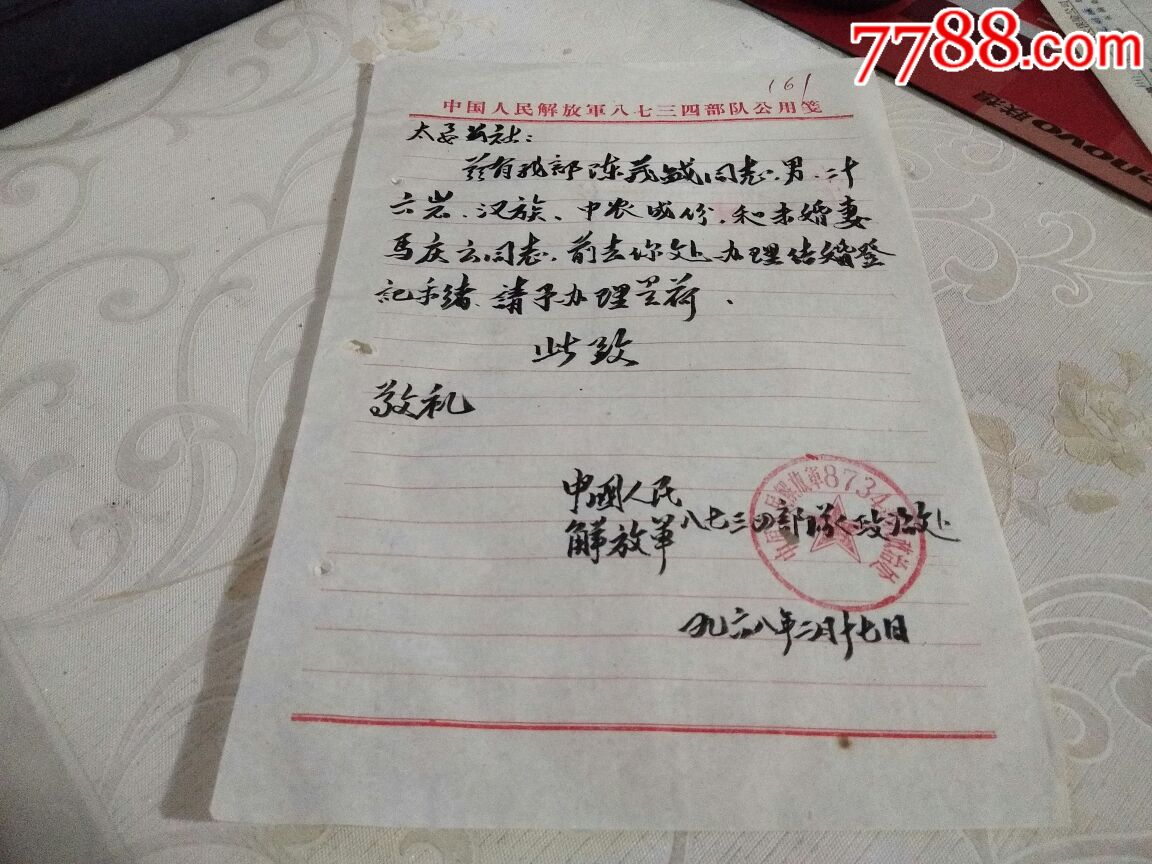 7788.com
161
中国人民解放軍八七三四部队公用笺
公社：
兹有我部陈茂盛同志，男，二十
六岁、汉族、中农成份，和未婚妻
马庆云同志，前去你处办理结婚登
記手绪，請予办理是荷．
此致
敬礼
中國人民
解放軍八七三四部隊政治处
一九六八年二月十七日
中国人民解放軍8734部队政治处
lenovo联想